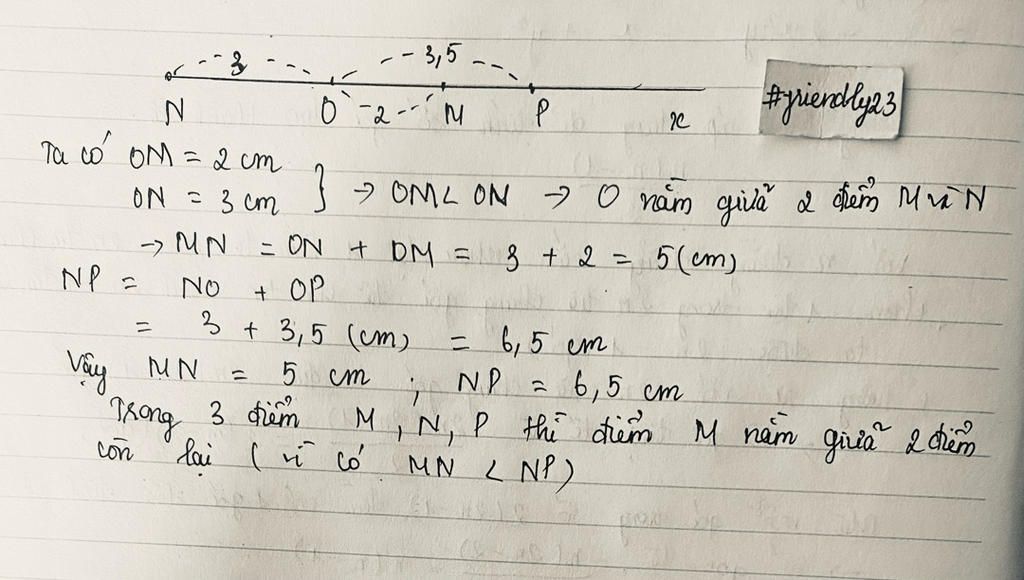 3
3,5
N O 2 M P x
#friendly23
Ta có OM = 2 cm
ON = 3 cm } → OM < ON → O nằm giữa 2 điểm M và N
→ MN = ON + OM = 3 + 2 = 5 (cm)
NP = NO + OP
= 3 + 3,5 (cm) = 6,5 cm
Vậy MN = 5 cm ; NP = 6,5 cm
Trong 3 điểm M, N, P thì điểm M nằm giữa 2 điểm
còn lại ( vì có MN < NP)